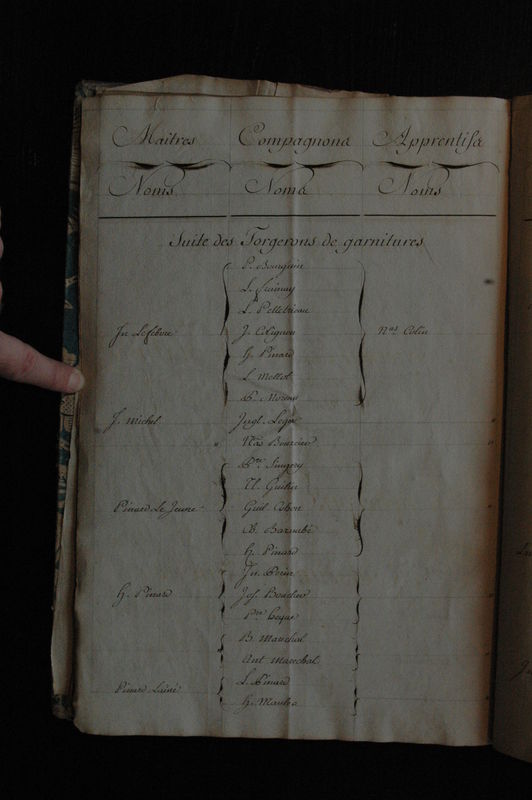 Maitres Compagnons Apprentifs
Noms Noms Noms
Suite des Forgerons de garnitures
P. Bourguin
L.
L. Pelletrieau
Jn Lefebvre J. Colignon Nas Colin
h. Pinard
L. Mollot
P. Moreau
J. michel Jngl. Legé
Nas Bourcier
Pre Singery
N. Guilin
Pinard Le Jeune Guil Cohon
Ch. Barnabé
h. Pinard
Jn. Perin
h. Pinard Jos. Boucher
Pre heque
B. Marechal
Ant. marechal
Pinard Lainé L. Pinard
h. Maulra